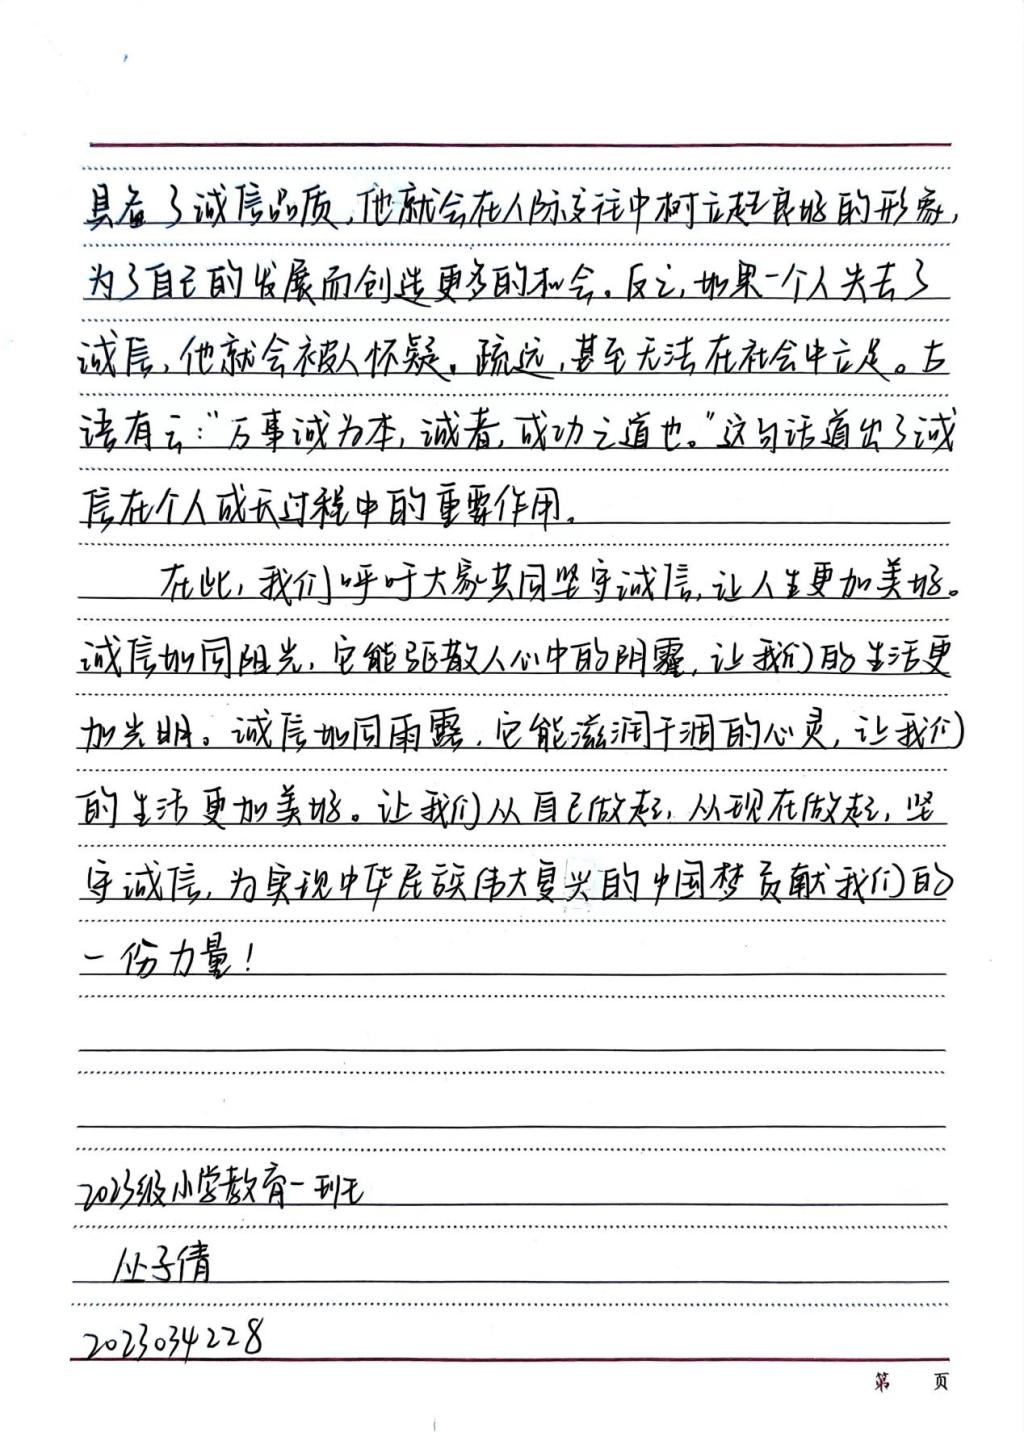 具备了诚信品质，他就会在人际交往中树立起良好的形象，
为了自己的发展而创造更多的机会。反之，如果一个人失去了
诚信，他就会被人怀疑。疏远，甚至无法在社会中立足。古
语有云：“万事诚为本，诚者，成功之道也。”这句话道出了诚
信在个人成长过程中的重要作用。
在此，我们呼吁大家共同坚守诚信，让人生更加美好。
诚信如同阳光，它能驱散人心中的阴霾，让我们的生活更
加光明。诚信如同雨露，它能滋润干涸的心灵，让我们
的生活更加美好。让我们从自己做起，从现在做起，坚
守诚信，为实现中华民族伟大复兴的中国梦贡献我们的
一份力量！
2023级小学教育一班
丛子倩
2023034228
第 页